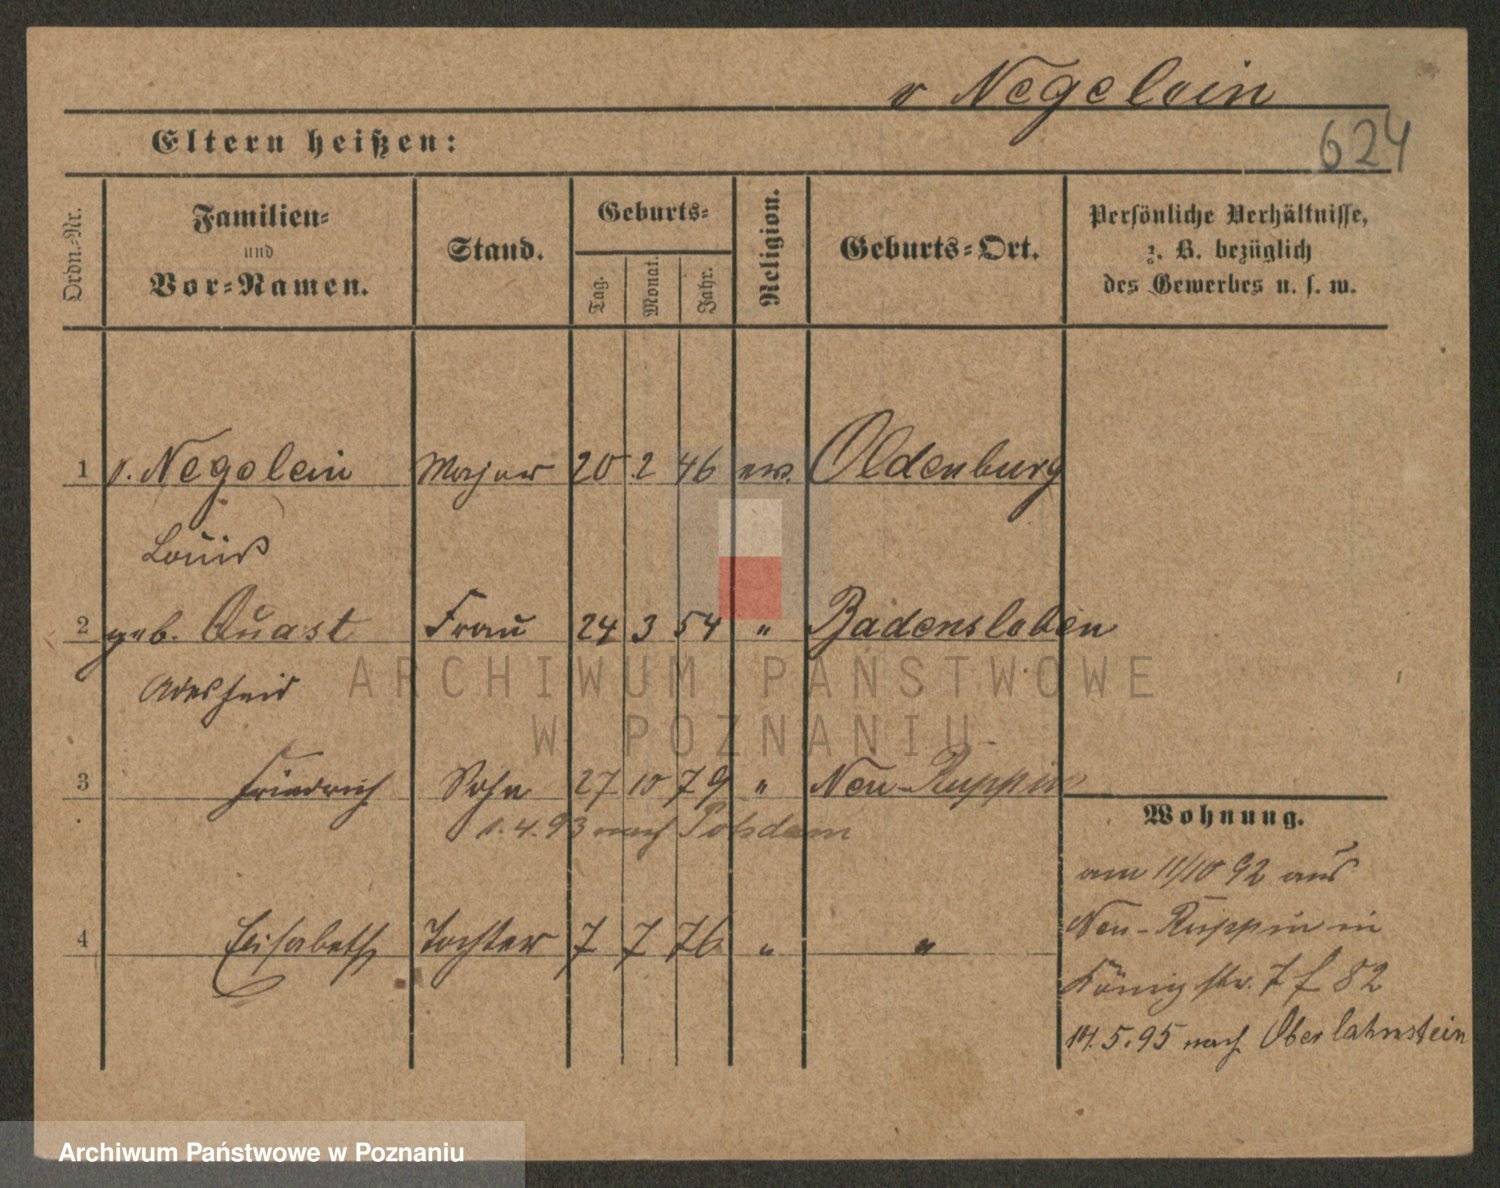 v Negelein
624
Eltern heißen:
Ordn.-Nr.
Familien-
und
Vor-Namen.
Stand.
Geburts-
Tag.
Monat.
Jahr.
Religion.
Geburts-Ort.
Persönliche Verhältnisse,
z. B. bezüglich
des Gewerbes u. s. w.
1 v. Negelein Major 20 2 46 ev. Oldenburg
Louis
2 geb. Quast Frau 24 3 54 " Radensleben
Adelheid
3 Friedrich Sohn 27 10 79 " Neu-Ruppin
1.4.93 nach Potsdam
4 Elisabeth Tochter 7 7 76 " "
Wohnung.
am 11/10 92 aus
Neu-Ruppin in
Königstr. 7 f 82
14.5.95 nach Oberlahnstein
ARCHIWUM PAŃSTWOWE
W POZNANIU
Archiwum Państwowe w Poznaniu